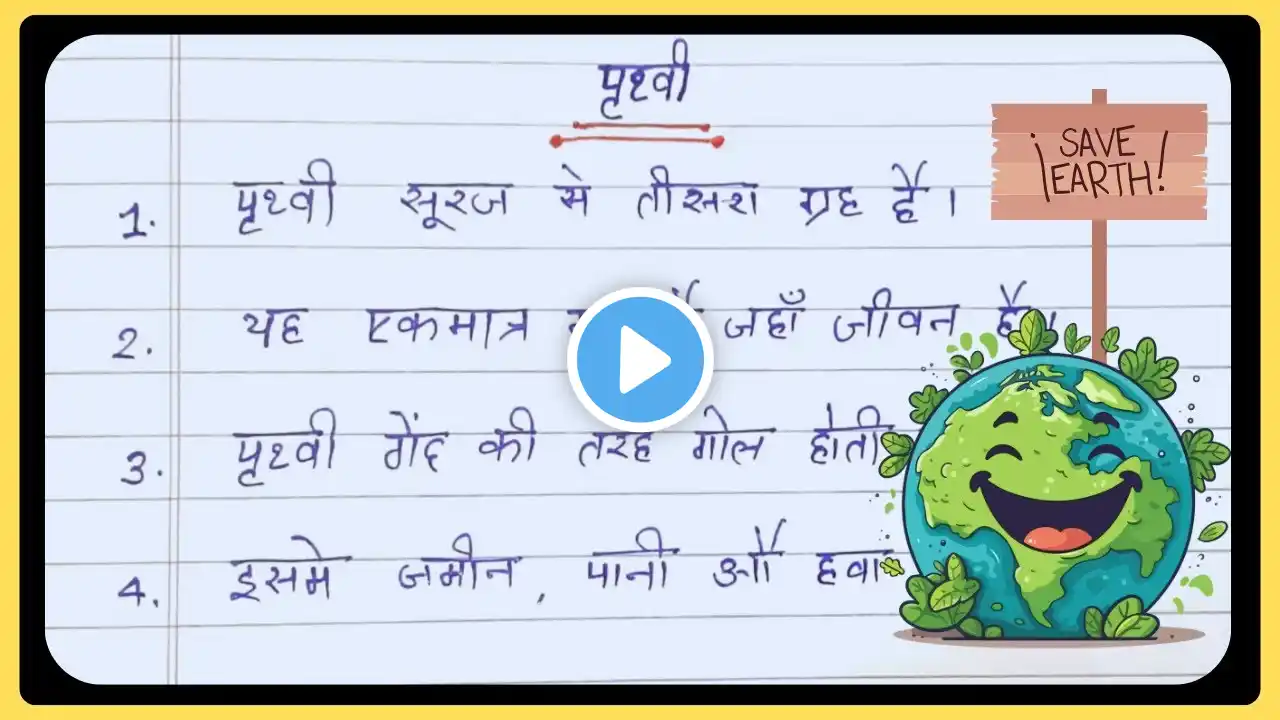 पृथ्वी
1. पृथ्वी सूरज से तीसरा ग्रह है।
¡SAVE EARTH!
2. यह एकमात्र जहाँ जीवन है।
3. पृथ्वी गेंद की तरह गोल होती
4. इसमे जमीन, पानी औ हवा